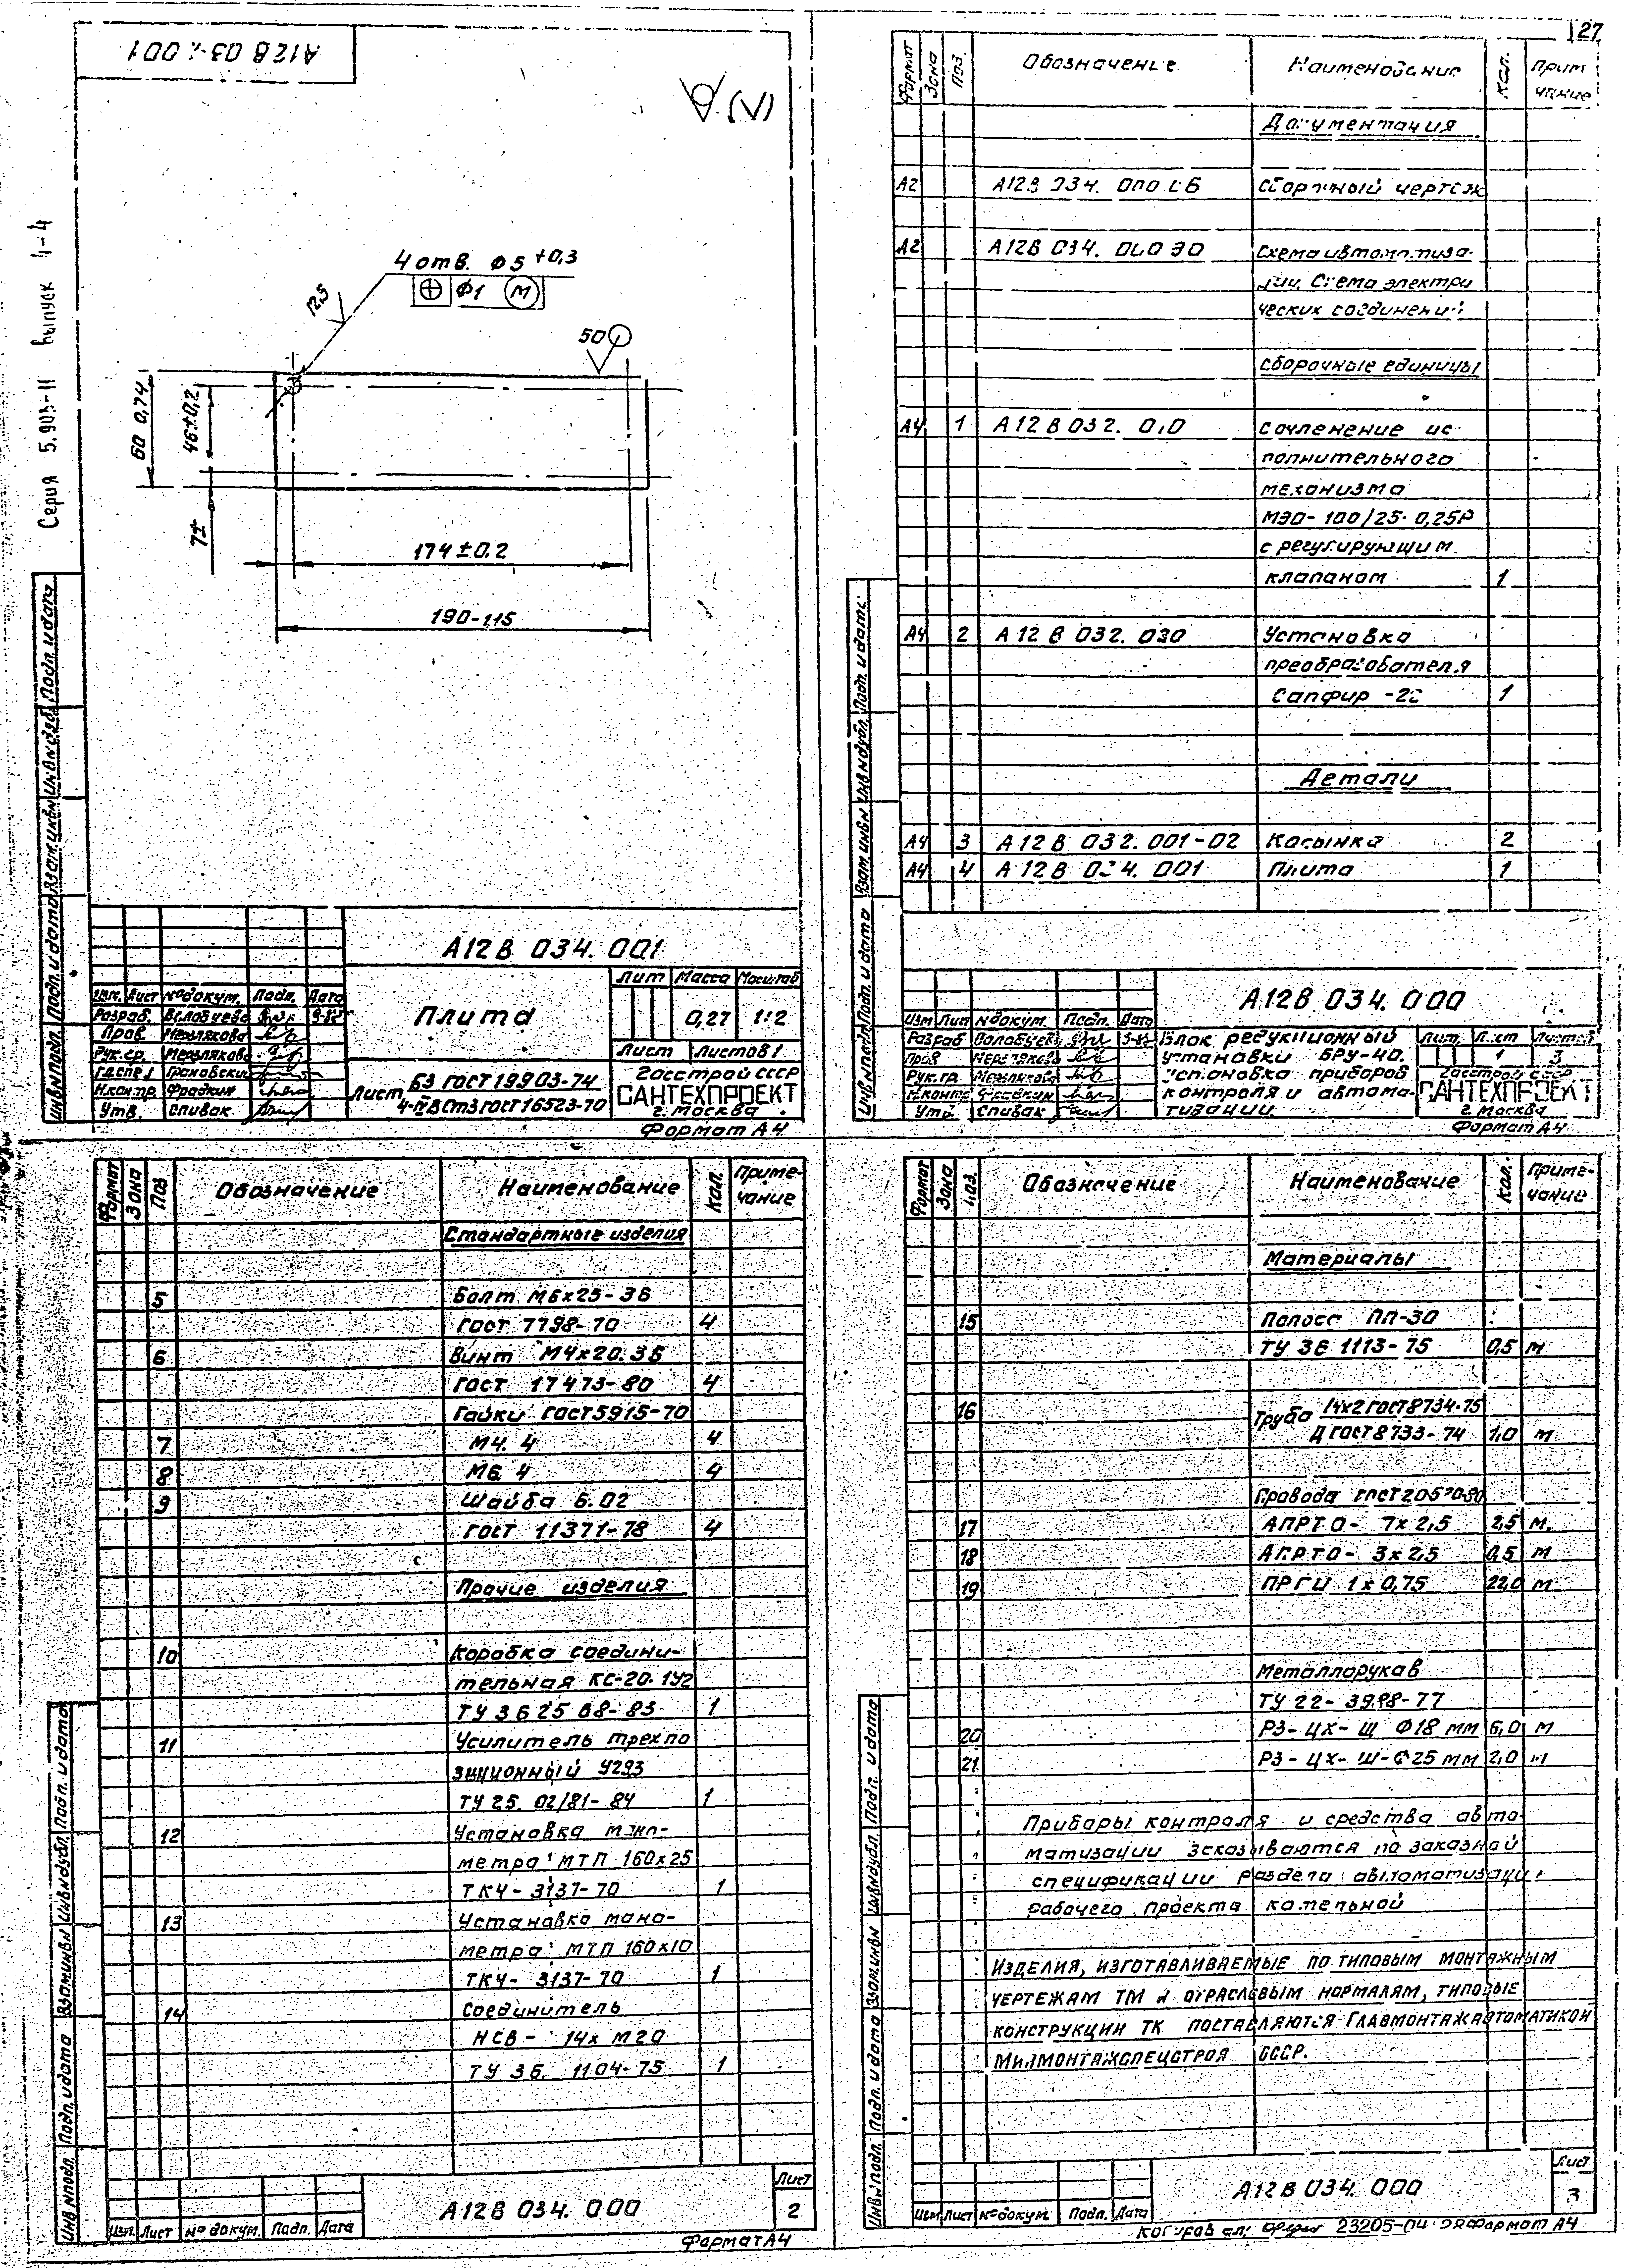 27
Серия 5.903-11 выпуск 4-4
4 отв. Ф5 +0,3
Ф1 М
12,5
50
46±0,2
174±0,2
190-1,15
Подп. и дата
Инв№дубл.
Взам.инв№
Подп. и дата
Инв№подл.
А12В 034.001
Изм. Лист №докум. Подп. Дата
Разраб.
Пров. Мерзлякова
Рук.гр. Мерзлякова
Грановский
Н.контр. Фрадкин
Утв. Спивак
Плита
Лит Масса Масштаб
0,27 1:2
Лист Листов 1
Лист Б3 ГОСТ 19903-74
4-IV ВСт3 ГОСТ 16523-70
Госстрой СССР
САНТЕХПРОЕКТ
г. Москва
Формат А4
Формат Зона Поз. Обозначение Наименование Кол. Приме-
чание
Документация
А2 А12В 034.000 СБ Сборочный чертеж
А2 А12В 034.000 Э0 Схема автоматиза-
ции. Схема электри
ческих соединений
Сборочные единицы
А4 1 А12В 032. Сочленение ис-
полнительного
механизма
МЭО-100/25-0,25Р
с регулирующим
клапаном 1
А4 2 А12В 032.030 Установка
преобразователя
Сапфир-22 1
Детали
А4 3 А12В 032.001-02 Косынка 2
А4 4 А12В 034.001 Плита 1
Подп. и дата
Инв№дубл.
Взам.инв№
Подп. и дата
Инв№подл.
А12В 034.000
Изм Лист №докум. Подп. Дата
Разраб
Пров Мерзлякова
Рук.гр. Мерзлякова
Н.контр Фрадкин
Утв Спивак
Блок редукционный
установки БРУ-40.
Установка приборов
контроля и автома-
тизации.
Лит. Лист Листов
1 3
Госстрой СССР
САНТЕХПРОЕКТ
г. Москва
Формат А4
Формат Зона Поз Обозначение Наименование Кол. Приме-
чание
Стандартные изделия
5 Болт М6х25-36
ГОСТ 7798-70 4
6 Винт М4х20.36
ГОСТ 17473-80 4
Гайки ГОСТ 5915-70
7 М4.4 4
8 М6.4 4
9 Шайба 6.02
ГОСТ 11371-78 4
Прочие изделия
10 Коробка соедини-
тельная КС-20-1У2
ТУ 36 25 68-83 1
11 Усилитель трехпо
зиционный У293
ТУ 25. 02/81-84 1
12 Установка мано-
метра МТП 160х25
ТКЧ-3137-70 1
13 Установка мано-
метра МТП 160х10
ТКЧ-3137-70 1
14 Соединитель
НСВ-14х М20
ТУ 36. 1104-75 1
Подп. и дата
Инв№дубл.
Взам.инв№
Подп. и дата
Инв№подл.
Изм. Лист №докум. Подп. Дата
А12В 034.000
Лист
2
Формат А4
Формат Зона Поз. Обозначение Наименование Кол. Приме-
чание
Материалы
15 Полоса ПП-30
ТУ 36 1113-75 0,5 м
16 Труба 14х2 ГОСТ 8734-75
Д ГОСТ 8733-74 1,0 м
Провода ГОСТ 20520-80
17 АПРТО-7х2,5 2,5 м.
18 АПРТО-3х2,5 0,5 м
19 ПРГИ 1х0,75 22,0 м
Металлорукав
ТУ 22-3998-77
20 РЗ-ЦХ-Ш Ф18 мм 6,0 м
21 РЗ-ЦХ-Ш-Ф25 мм 2,0 м
Приборы контроля и средства авто-
матизации заказываются по заказной
спецификации раздела автоматизации
рабочего проекта котельной
Изделия, изготавливаемые по типовым монтажным
чертежам ТМ и отраслевым нормалям, типовые
конструкции ТК поставляются Главмонтажавтоматикой
Минмонтажспецстроя СССР.
Подп. и дата
Инв№дубл.
Взам.инв№
Подп. и дата
Инв№подл.
Изм Лист №докум. Подп. Дата
А12В 034.000
Лист
3
23205-04 Формат А4